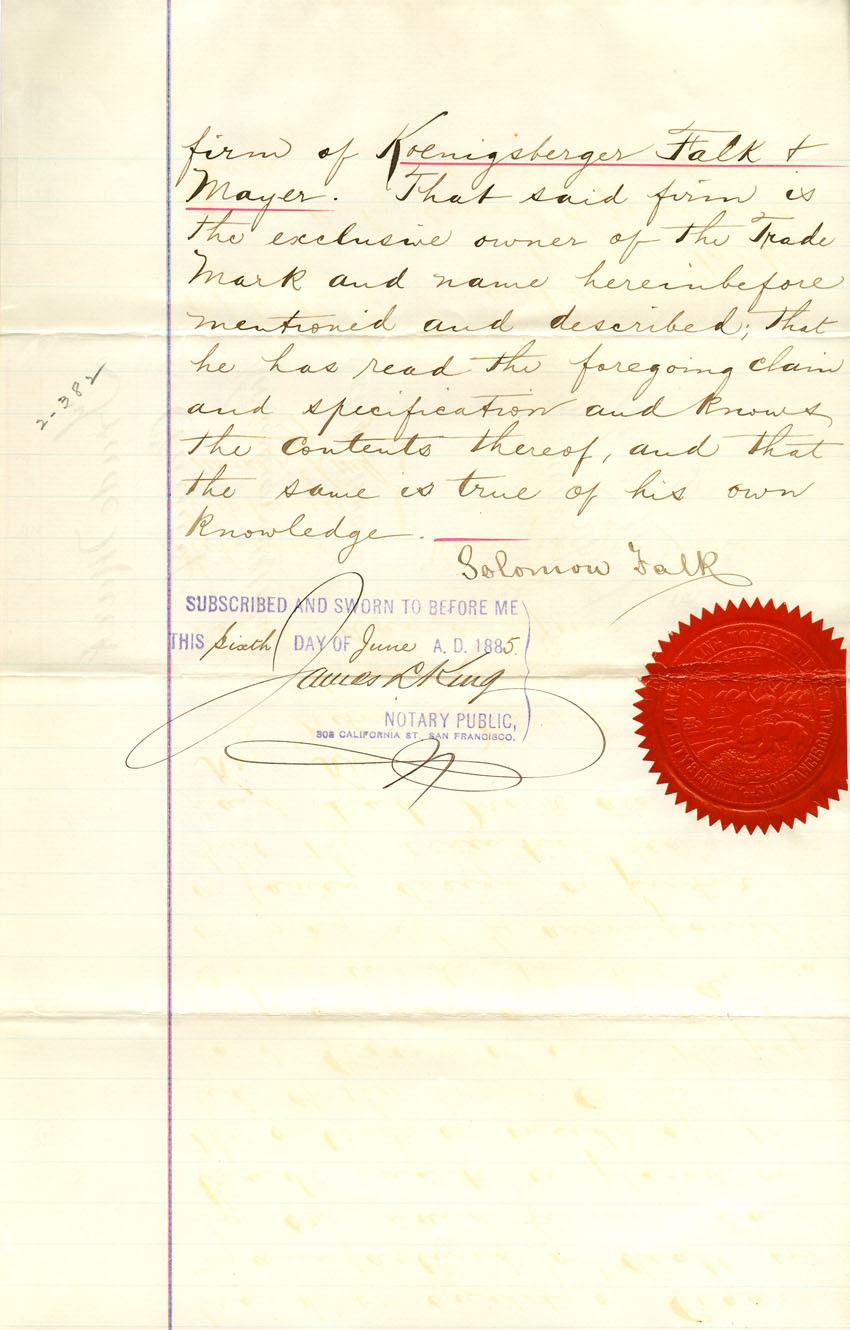 firm of Koenigsberger Falk +
Mayer. That said firm is
the exclusive owner of the Trade
Mark and name hereinbefore
mentioned and described; that
he has read the foregoing claim
and specification and knows
the contents thereof, and that
the same is true of his own
knowledge.
2-382
Solomon Falk
SUBSCRIBED AND SWORN TO BEFORE ME
THIS Sixth DAY OF June A. D. 1885.
James L King
NOTARY PUBLIC,
302 CALIFORNIA ST. SAN FRANCISCO.